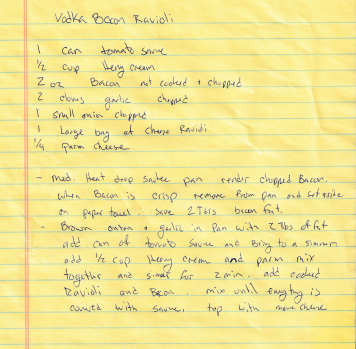 Vodka Bacon Ravioli
1 can tomato sauce
1/2 cup Heavy cream
2 oz Bacon not cooked + chopped
2 cloves garlic chopped
1 small onion chopped
1 Large bag of cheese Ravioli
1/4 parm cheese
- med. Heat drop sautee pan render chopped Bacon.
when Bacon is crisp remove from pan and set aside
on paper towel. save 2 Tbls bacon fat.
- Brown onion & garlic in Pan with 2 Tbls of fat
add can of tomato sauce and Bring to a simmer
add 1/2 cup Heavy cream and parm mix
together and simmer for 2 min. add cooked
Ravioli and Bacon. mix until everything is
covered with sauce. top with more cheese